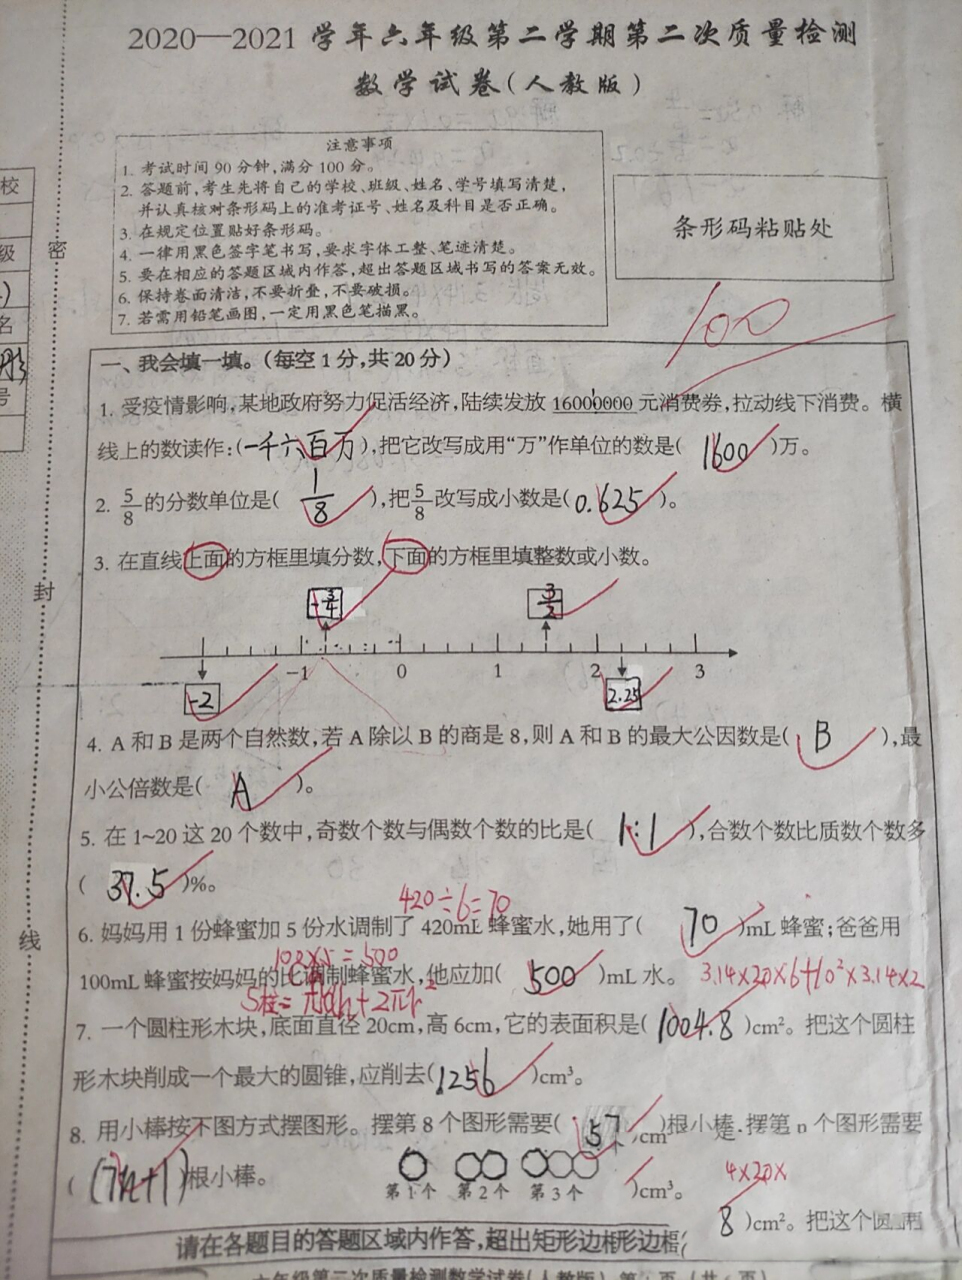 2020—2021学年六年级第二学期第二次质量检测
数学试卷(人教版)
注意事项
1. 考试时间90分钟,满分100分。
2. 答题前,考生先将自己的学校、班级、姓名、学号填写清楚,
并认真核对条形码上的准考证号、姓名及科目是否正确。
3. 在规定位置贴好条形码。
4. 一律用黑色签字笔书写,要求字体工整、笔迹清楚。
5. 要在相应的答题区域内作答,超出答题区域书写的答案无效。
6. 保持卷面清洁,不要折叠,不要破损。
7. 若需用铅笔画图,一定用黑色笔描黑。
条形码粘贴处
校
级
名
号
密
封
线
100
一、我会填一填。(每空1分,共20分)
1. 受疫情影响,某地政府努力促活经济,陆续发放16000000元消费券,拉动线下消费。横
线上的数读作:(一千六百万),把它改写成用“万”作单位的数是( 1600 )万。
2. 5/8的分数单位是( 1/8 ),把5/8改写成小数是(0.625)。
3. 在直线上面的方框里填分数,下面的方框里填整数或小数。
-3/4 3/2
-1 0 1 2 3
-2 2.25
4. A和B是两个自然数,若A除以B的商是8,则A和B的最大公因数是( B ),最
小公倍数是( A )。
5. 在1~20这20个数中,奇数个数与偶数个数的比是( 1:1 ),合数个数比质数个数多
( 37.5 )%。
420÷6=70
6. 妈妈用1份蜂蜜加5份水调制了420mL蜂蜜水,她用了( 70 )mL蜂蜜;爸爸用
100×5=500
100mL蜂蜜按妈妈的比调制蜂蜜水,他应加( 500 )mL水。 3.14×20×6+10²×3.14×2
S柱=πdh+2πr²
7. 一个圆柱形木块,底面直径20cm,高6cm,它的表面积是( 1004.8 )cm²。把这个圆柱
形木块削成一个最大的圆锥,应削去( 1256 )cm³。
8. 用小棒按下图方式摆图形。摆第8个图形需要( 57 )cm根小棒.摆第n个图形需要
( (7n+1) )根小棒。
第1个 第2个 第3个
)cm³。
4×20×
8 )cm²。把这个圆
请在各题目的答题区域内作答,超出矩形边框形边框(
六年级第二次质量检测数学试卷(人教版) 第1页(共 页)